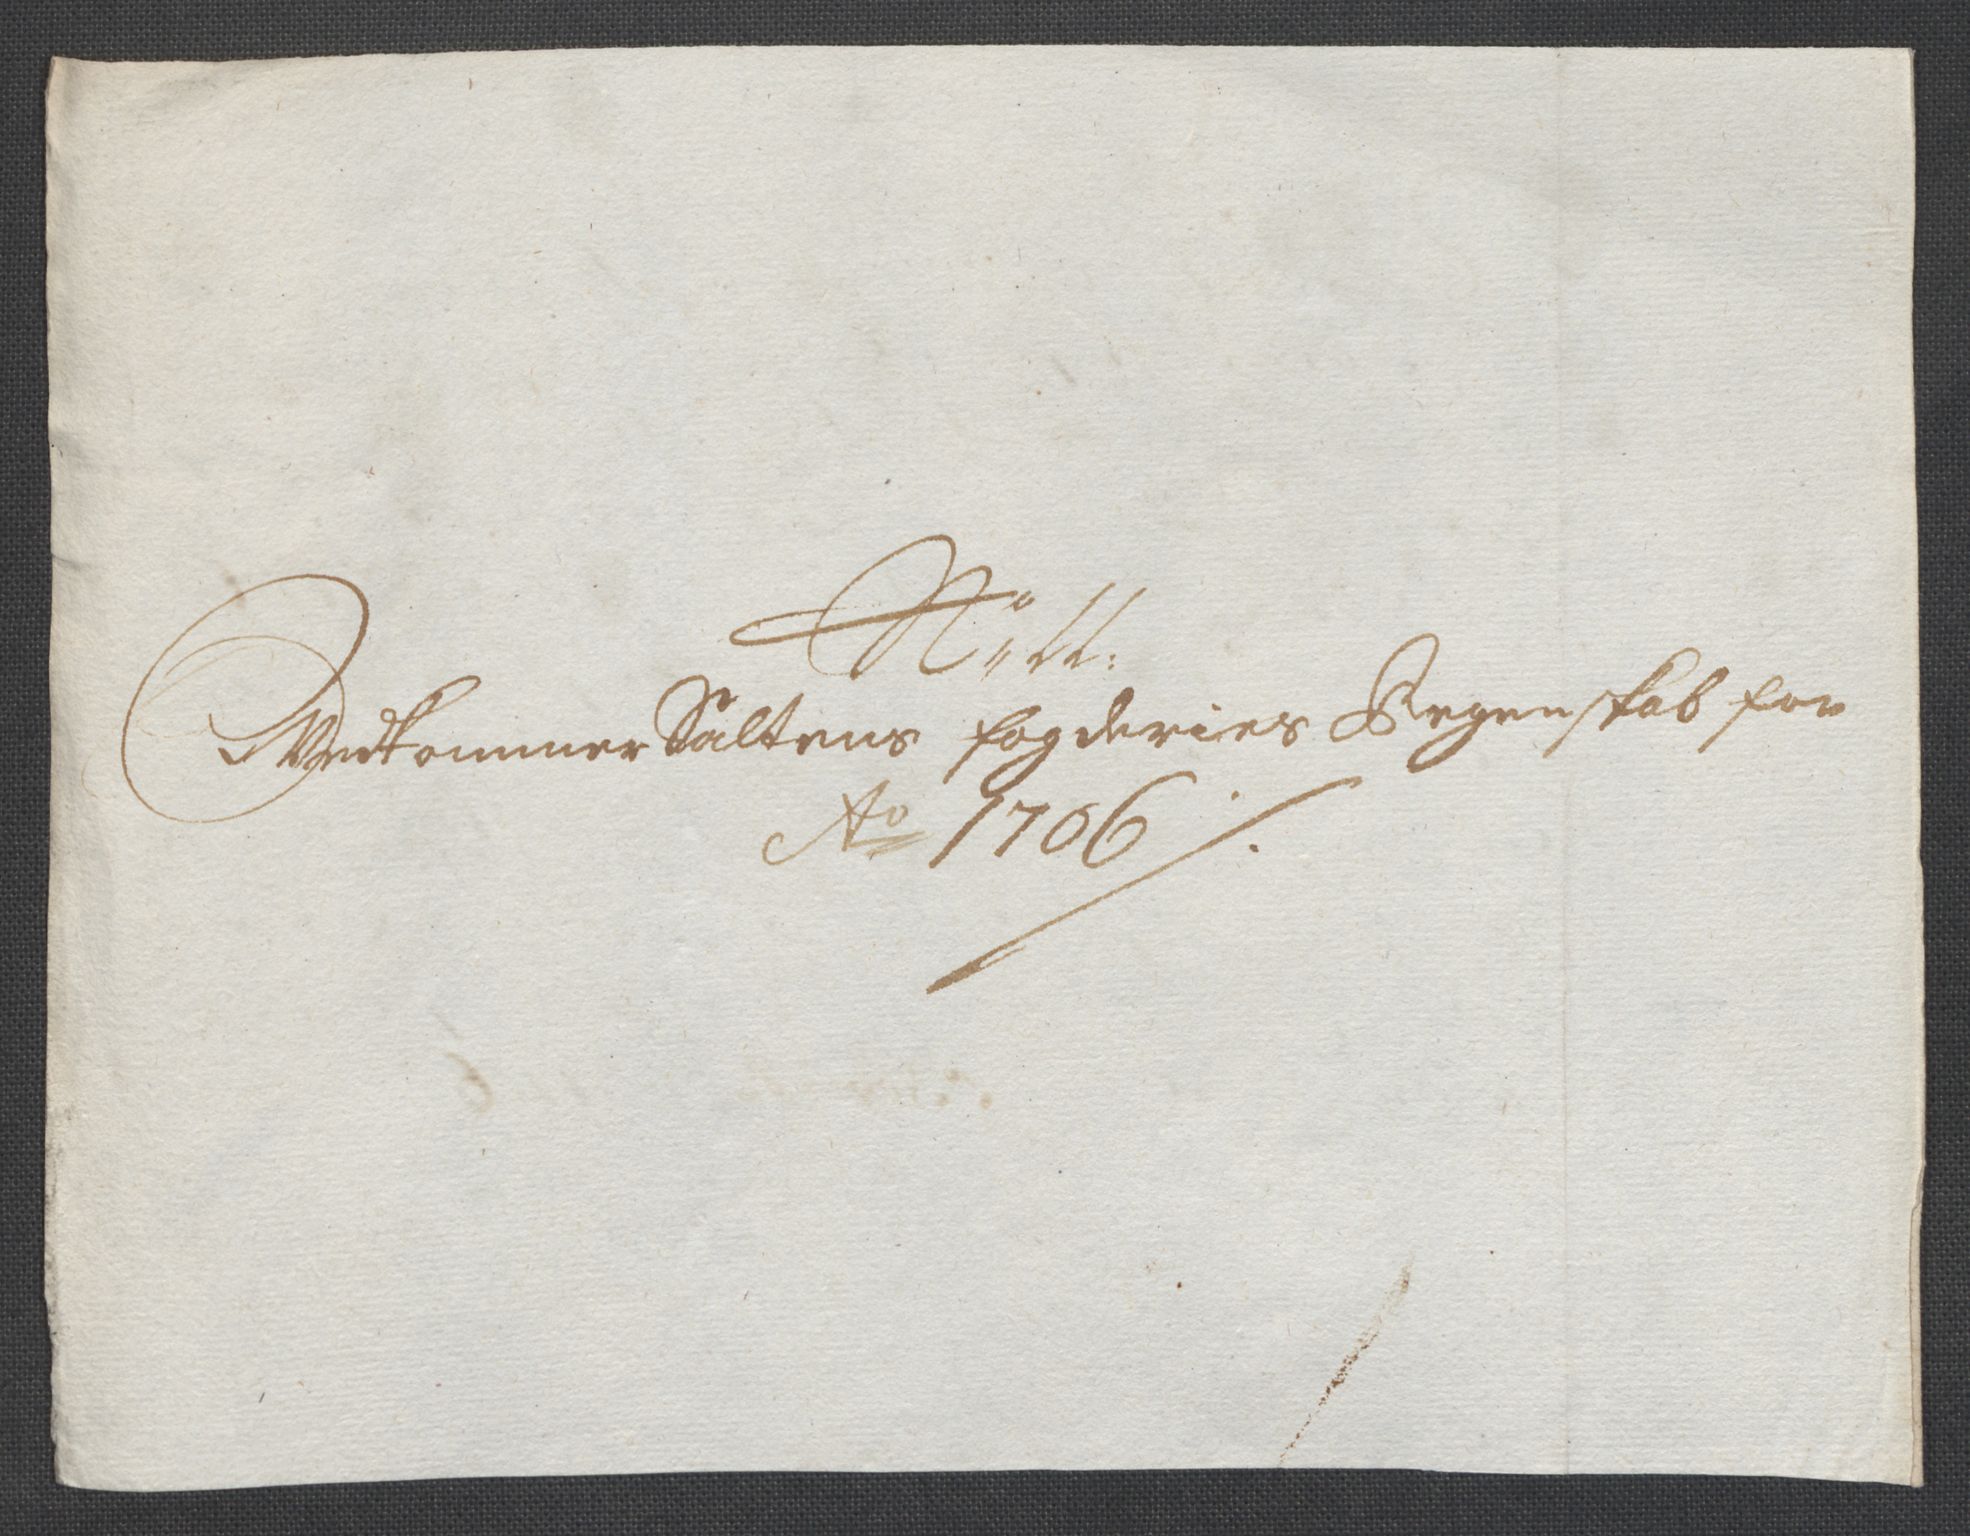 No 11:
Vedkommer Saltens fogderies Regenskab for
Ao 1706 /.